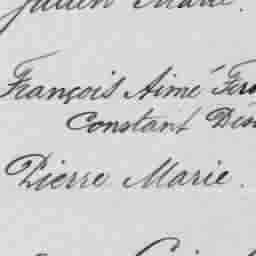 Julien Marie.
François Aimé
Constant
Pierre Marie.